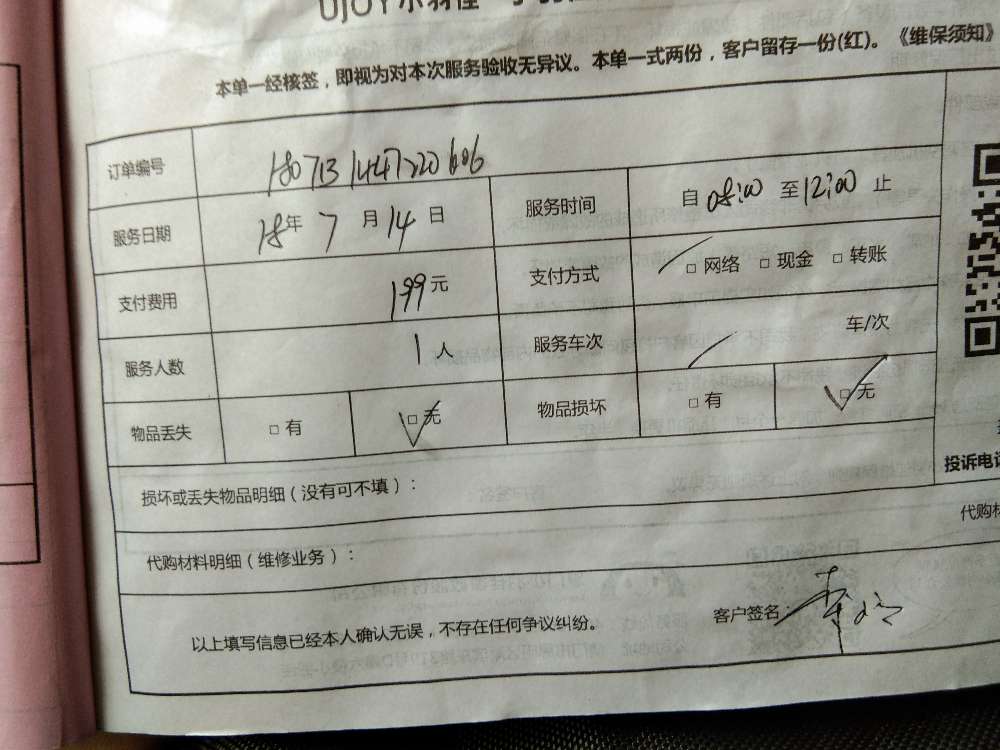 UJOY小羽佳
本单一经核签，即视为对本次服务验收无异议。本单一式两份，客户留存一份(红)。《维保须知》
订单编号 180713144720606
服务日期 18年 7 月 14 日 服务时间 自 08:00 至 12:00 止
支付费用 199 元 支付方式 □ 网络 □ 现金 □ 转账
服务人数 1 人 服务车次 车/次
物品丢失 □ 有 □ 无 物品损坏 □ 有 □ 无
投诉电话
损坏或丢失物品明细（没有可不填）：
代购材料明细（维修业务）： 代购材
以上填写信息已经本人确认无误，不存在任何争议纠纷。 客户签名：